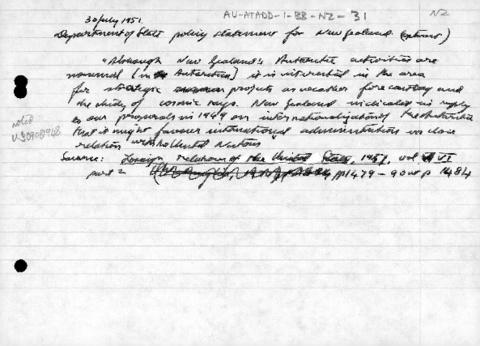 AU-ATADD-1-BB-NZ-31
NZ
30 July 1951
Department of State policy statement for New Zealand (extract)
"Although New Zealand's Antarctic activities are
[in Antarctica] it is interested in the area
for strategic projects as weather forecasting and
the study of cosmic rays. New Zealand indicated in reply
to our proposals in 1949 on internationalization of the Antarctic
that it might favour international administration in close
relation with the United Nations
Source: Foreign relations of the United States, 1951, vol VI
part 2 pp 1479-90 at p 1484
noted